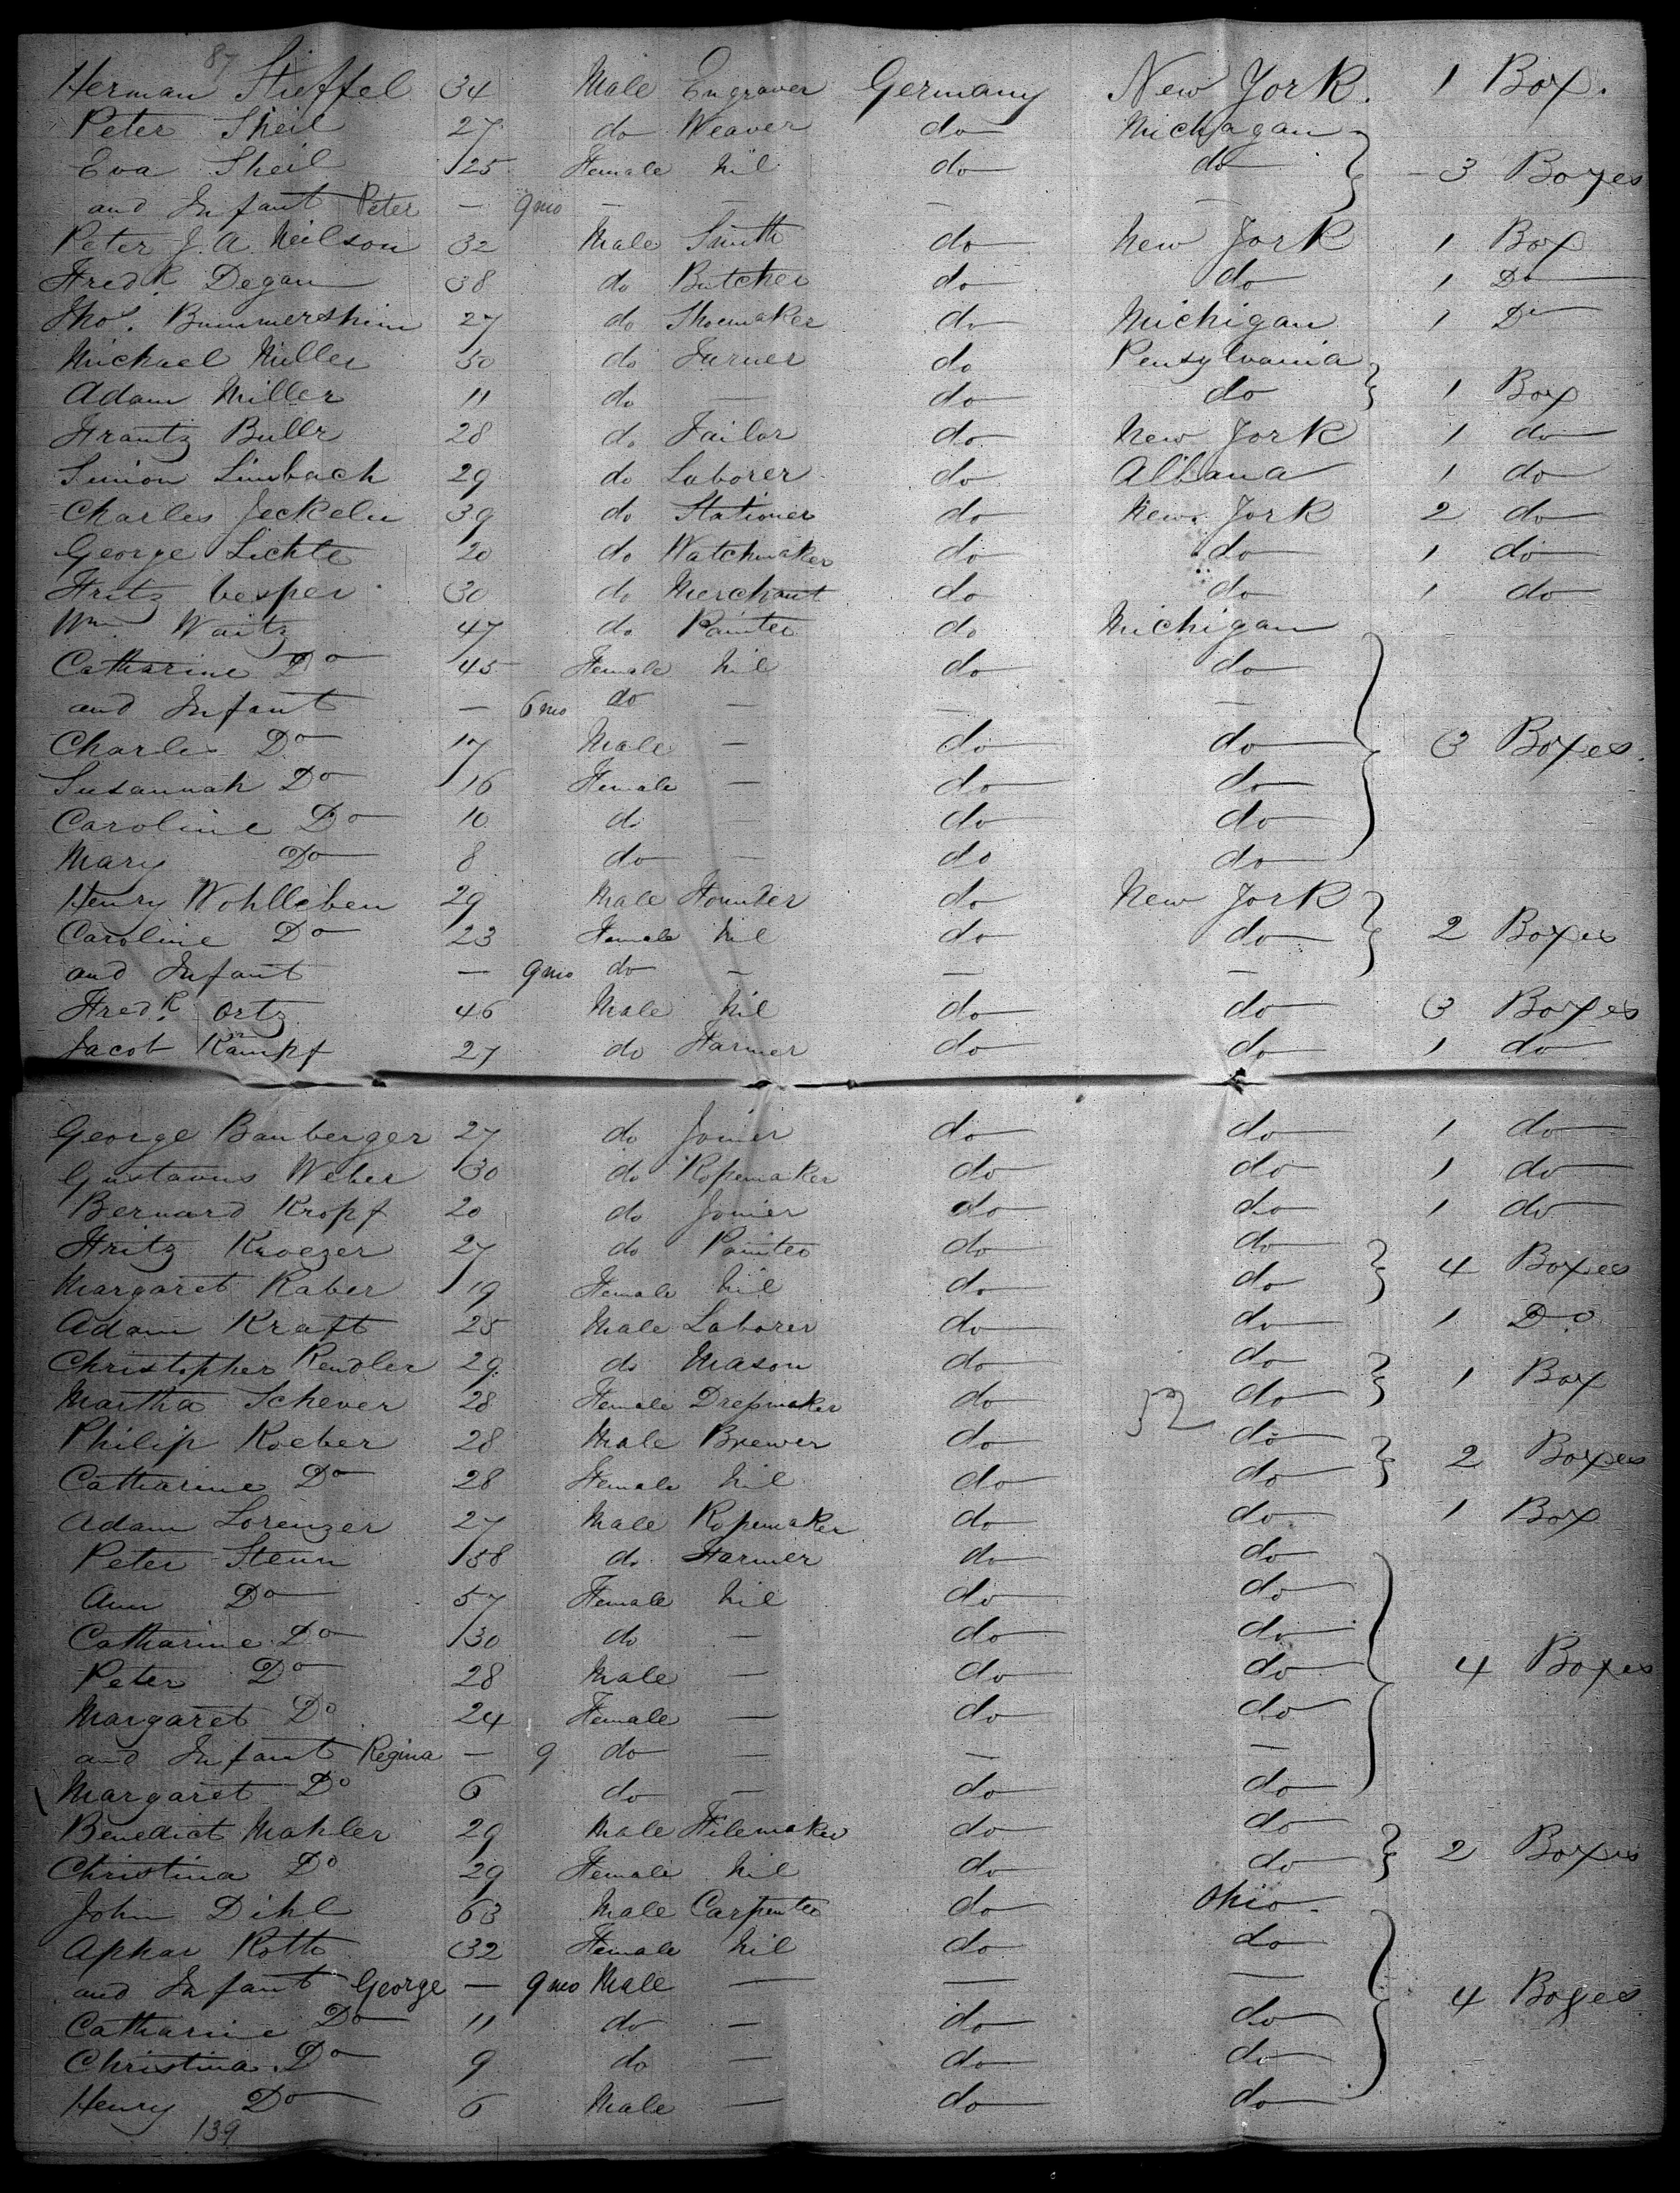 87
Herman Stieffel 34 Male Engraver Germany New York. 1 Box.
Peter Sheil 27 do Weaver do Michagan
Eva Sheil 25 Female nil do do 3 Boxes
and Infant Peter — 9 mo — — — —
Peter J. A. Neilson 32 Male Smith do New York 1 Box
Fredk. Degan 38 do Butcher do do 1 Do
Thos. Bummershim 27 do Shoemaker do Michigan 1 Do
Michael Miller 50 do Turner do Pensylvania
Adam Miller 11 do — do do 1 Box
Frantz Bullr 28 do Tailor do New York 1 do
Simon Limbach 29 do Laborer do Albana 1 do
Charles Jeckelu 39 do Stationer do New York 2 do
George Lichte 20 do Watchmaker do do 1 do
Fritz Vesper 30 do Merchant do do 1 do
Wm. Waitz 47 do Painter do Michigan
Catharine Do 45 Female nil do do
and Infant — 6 mo do — — —
Charles Do 17 Male — do do 3 Boxes.
Susannah Do 16 Female — do do
Caroline Do 10 do — do do
Mary Do 8 do — do do
Henry Wohlleben 29 Male Founder do New York
Caroline Do 23 Female nil do do 2 Boxes
and Infant — 9 mo do — — —
Fredk. Ortz 46 Male nil do do 3 Boxes
Jacob Kämpf 27 do Farmer do do 1 do
George Bamberger 27 do Joiner do do 1 do
Gustavus Weber 30 do Ropemaker do do 1 do
Bernard Kropf 20 do Joiner do do 1 do
Fritz Kroezer 27 do Painter do do
Margaret Raber 19 Female nil do do 4 Boxes
Adam Kraft 25 Male Laborer do do 1 Do
Christopher Rendler 29 do Mason do do
Martha Schever 28 Female Dressmaker do 52 do 1 Box
Philip Roeber 28 Male Brewer do do
Catharine Do 28 Female nil do do 2 Boxes
Adam Lorenzer 27 Male Ropemaker do do 1 Box
Peter Stenn 58 do Farmer do do
Ann Do 57 Female nil do do
Catharine Do 30 do — do do
Peter Do 28 Male — do do 4 Boxes
Margaret Do 24 Female — do do
and Infant Regina — 9 do — — —
Margaret Do 6 do — do do
Benedict Mahler 29 Male Filemaker do do
Christina Do 29 Female nil do do 2 Boxes
John Dihl 63 Male Carpenter do Ohio
Aphar Roth 32 Female nil do do
and Infant George — 9 mo Male — — —
Catharine Do 11 do — do do 4 Boxes
Christina Do 9 do — do do
Henry Do 6 Male — do do
139